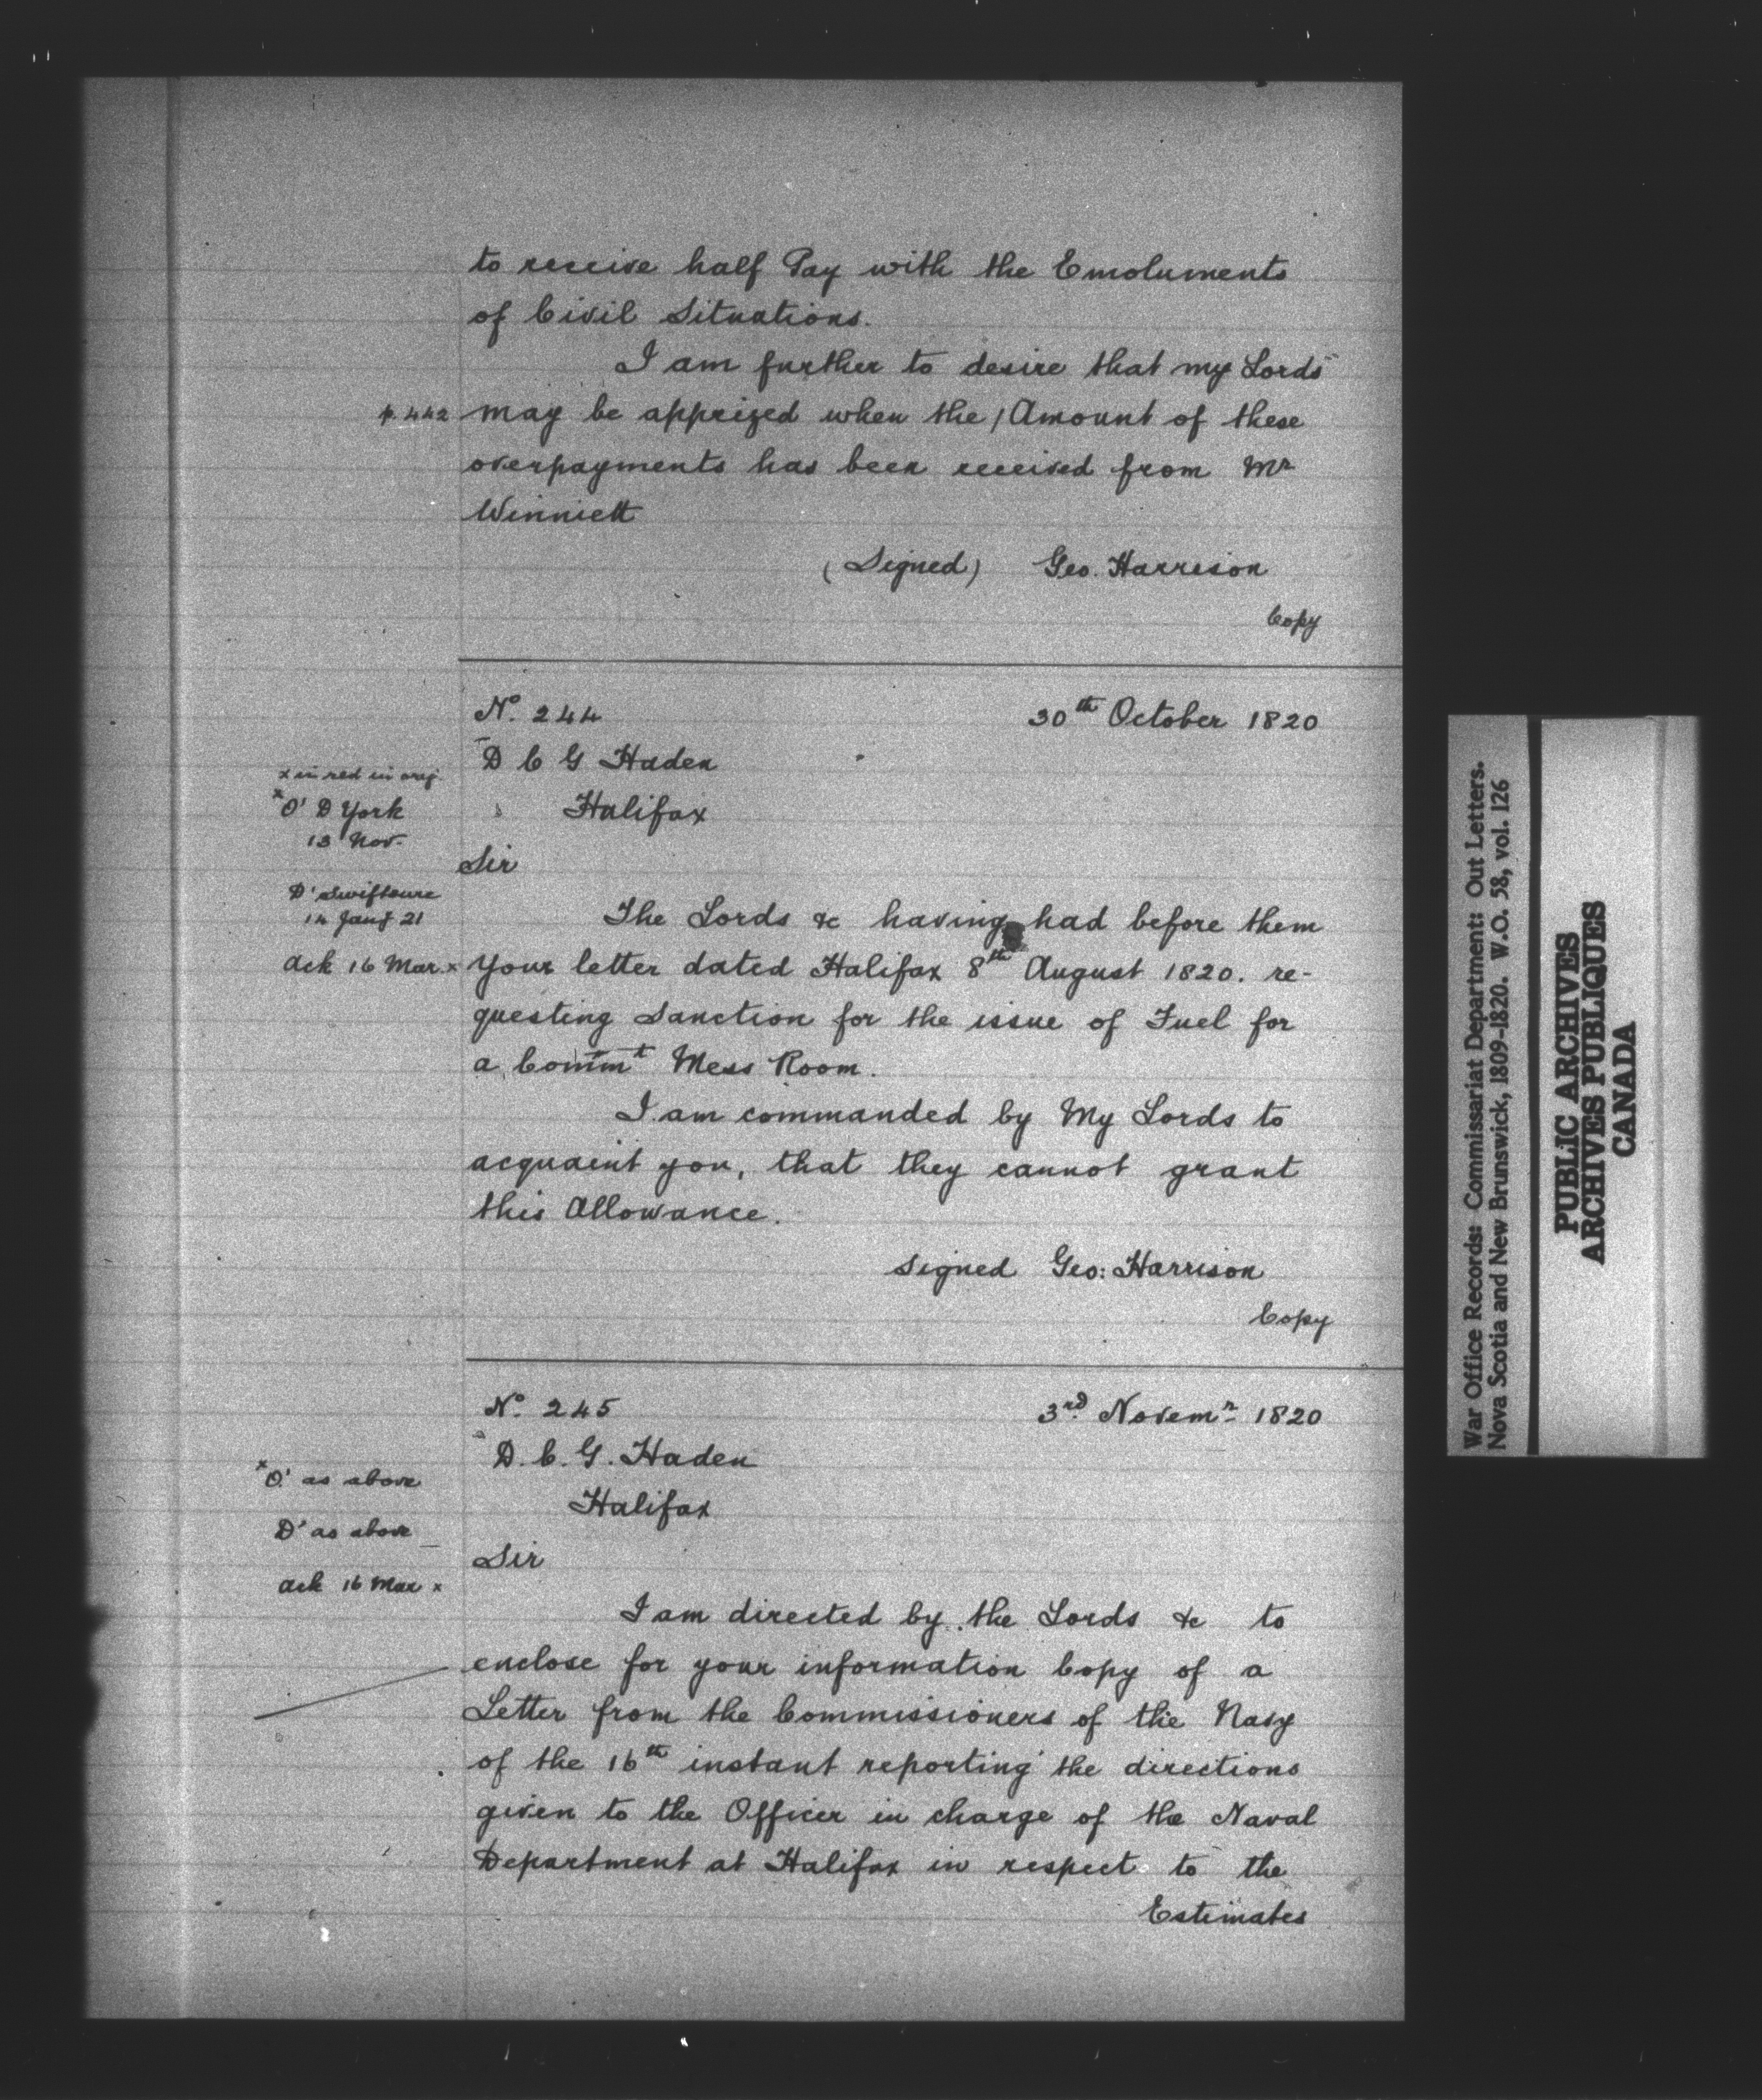 to receive half Pay with the Emoluments
of Civil Situations.
I am further to desire that my Lords
p. 442 may be apprized when the / Amount of these
overpayments has been received from Mr
Winniett
(Signed) Geo. Harrison
Copy
No. 244 30th October 1820
D C G Haden
Halifax
x in red in orig.
x O' D York
13 Nov.
Sir
D' Swiftsure
14 Jany 21
The Lords &c having had before them
ack 16 Mar. x your letter dated Halifax 8th August 1820. re-
questing Sanction for the issue of Fuel for
a Commt Mess Room.
I am commanded by My Lords to
acquaint you, that they cannot grant
this Allowance.
Signed Geo: Harrison
Copy
No. 245 3rd Novemr 1820
D. C. G. Haden
x O' as above
Halifax
D' as above
Sir
ack 16 Mar x
I am directed by the Lords &c to
enclose for your information Copy of a
Letter from the Commissioners of the Navy
of the 16th instant reporting the directions
given to the Officer in charge of the Naval
Department at Halifax in respect to the
Estimates
War Office Records: Commissariat Department: Out Letters.
Nova Scotia and New Brunswick, 1809-1820. W.O. 58, vol. 126
PUBLIC ARCHIVES
ARCHIVES PUBLIQUES
CANADA